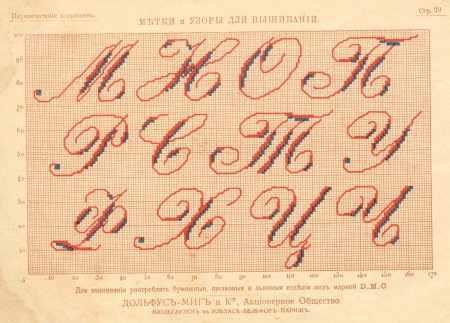 Перепечатание запрещено.
Стр. 20
МѢТКИ и УЗОРЫ ДЛЯ ВЫШИВАНІЯ.
М Н О П
Р С Т У
Ф Х Ц Ч
100
90
80
70
60
50
40
30
20
10
10 20 30 40 50 60 70 80 90 100 110 120 130 140 150 160 170
Для вышиванія употреблять бумажныя, шелковыя и льняныя издѣлія подъ маркой D.M.C
ДОЛЬФУСЪ-МИГЪ и Кº, Акціонерное Общество
МЮЛЬГАУЗЕНЪ въ ЭЛЬЗАСѢ-БЕЛЬФОРЪ-ПАРИЖЪ.